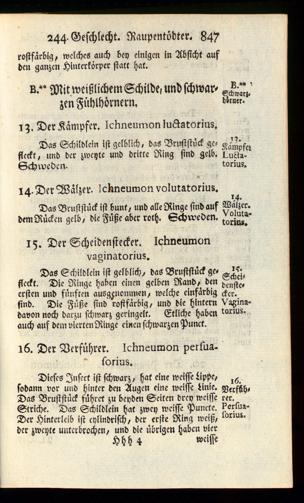 244. Geschlecht. Raupentödter. 847
rostfärbig, welches auch bey einigen in Absicht auf
den ganzen Hinterkörper statt hat.
B.** Mit weißlichem Schilde, und schwar-
zen Fühlhörnern.
B.**
Schwarz-
hörner.
13. Der Kämpfer. Ichneumon luctatorius.
Das Schildlein ist gelblich, das Bruststück ge-
fleckt, und der zweyte und dritte Ring sind gelb.
Schweden.
13.
Kämpfer
Lucta-
torius.
14. Der Wälzer. Ichneumon volutatorius.
Das Bruststück ist bunt, und alle Ringe sind auf
dem Rücken gelb, die Füße aber roth. Schweden.
14.
Wälzer.
Voluta-
torius.
15. Der Scheidenstecker. Ichneumon
vaginatorius.
Das Schildlein ist gelblich, das Bruststück ge-
fleckt. Die Ringe haben einen gelben Rand, den
ersten und fünften ausgenommen, welche einfärbig
sind. Die Füße sind rostfärbig, und die hintern
davon noch darzu schwarz geringelt. Etliche haben
auch auf dem vierten Ringe einen schwarzen Punct.
15.
Schei-
denste-
cker.
Vagina-
torius.
16. Der Verführer. Ichneumon persua-
sorius.
Dieses Insect ist schwarz, hat eine weisse Lippe,
sodann vor und hinter den Augen eine weisse Linie.
Das Bruststück führet zu beyden Seiten drey weisse
Striche. Das Schildlein hat zwey weisse Puncte.
Der Hinterleib ist cylindrisch, der erste Ring weiß,
der zweyte unterbrochen, und die übrigen haben vier
16.
Verfüh-
rer.
Persua-
sorius.
Hhh 4 weisse